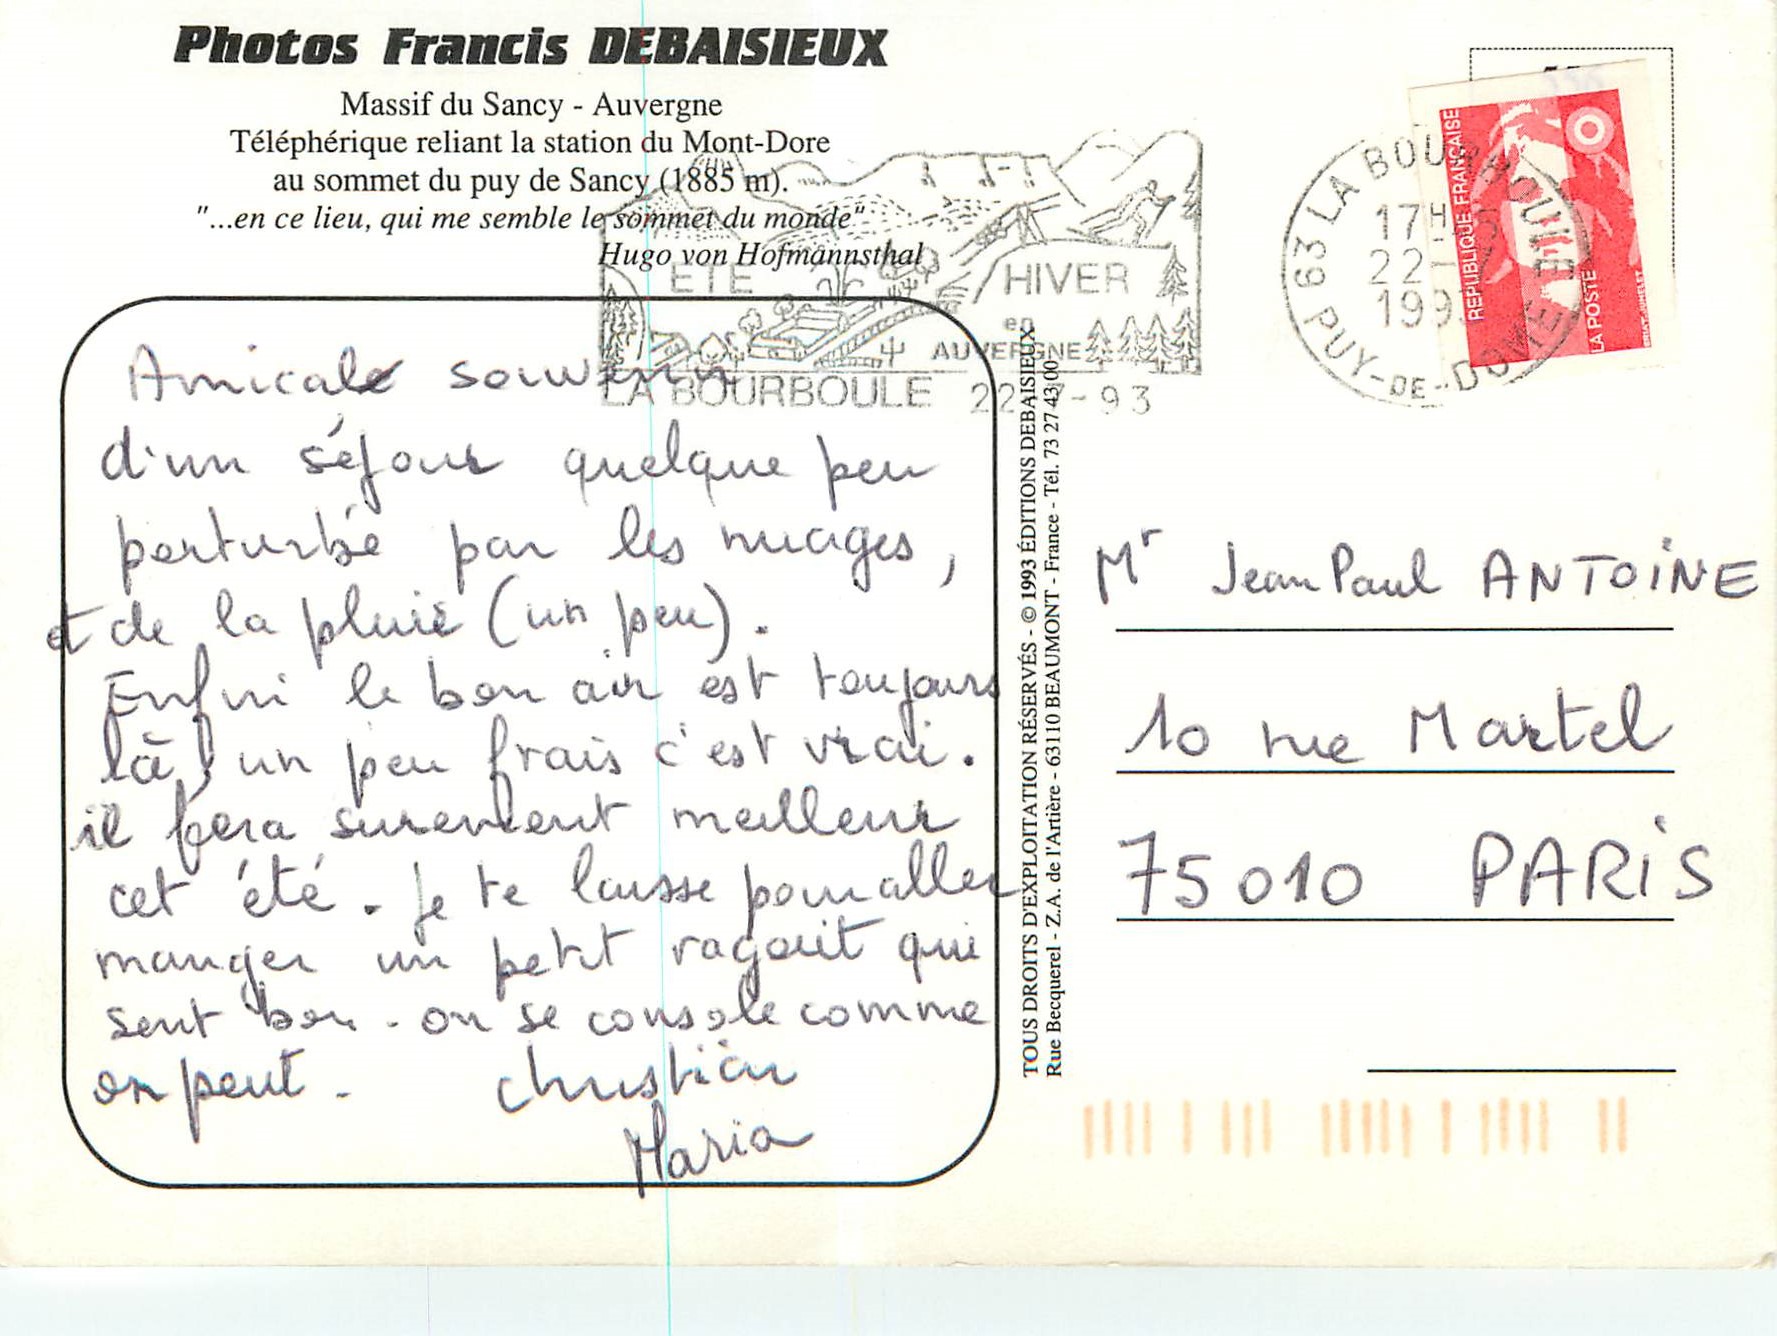 Photos Francis DEBAISIEUX
Massif du Sancy - Auvergne
Téléphérique reliant la station du Mont-Dore
au sommet du puy de Sancy (1885 m).
"...en ce lieu, qui me semble le sommet du monde"
Hugo von Hofmannsthal
ÉTÉ HIVER
en
AUVERGNE
LA BOURBOULE 22-7-93
63 LA BOURBOULE
17H
22-
199
PUY-DE-DOME
REPUBLIQUE FRANÇAISE
LA POSTE
Amicale souvenir
d'un séjour quelque peu
perturbé par les nuages,
et de la pluie (un peu).
Enfin le bon air est toujours
là, un peu frais c'est vrai.
il fera surement meilleur
cet été. Je te laisse pour aller
manger un petit ragout qui
sent bon - on se console comme
on peut - Christian
Maria
TOUS DROITS D'EXPLOITATION RÉSERVÉS - © 1993 ÉDITIONS DEBAISIEUX
Rue Becquerel - Z.A. de l'Artière - 63110 BEAUMONT - France - Tél. 73 27 43 00
Mr Jean Paul ANTOINE
10 rue Martel
75010 PARIS